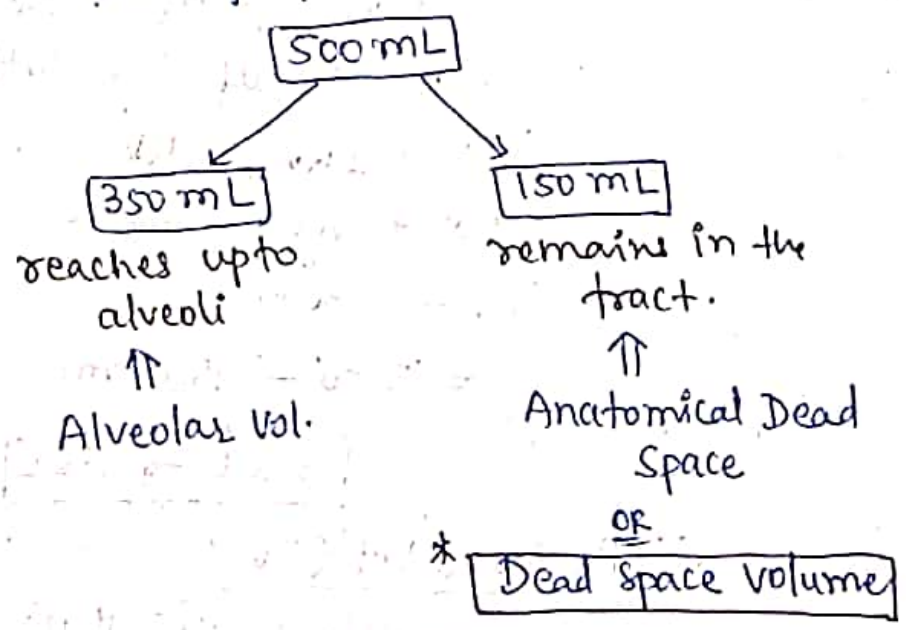 500mL
350 mL
150 mL
reaches upto
alveoli
⇑
Alveolar Vol.
remains in the
tract.
⇑
Anatomical Dead
Space
OR
* Dead Space Volume